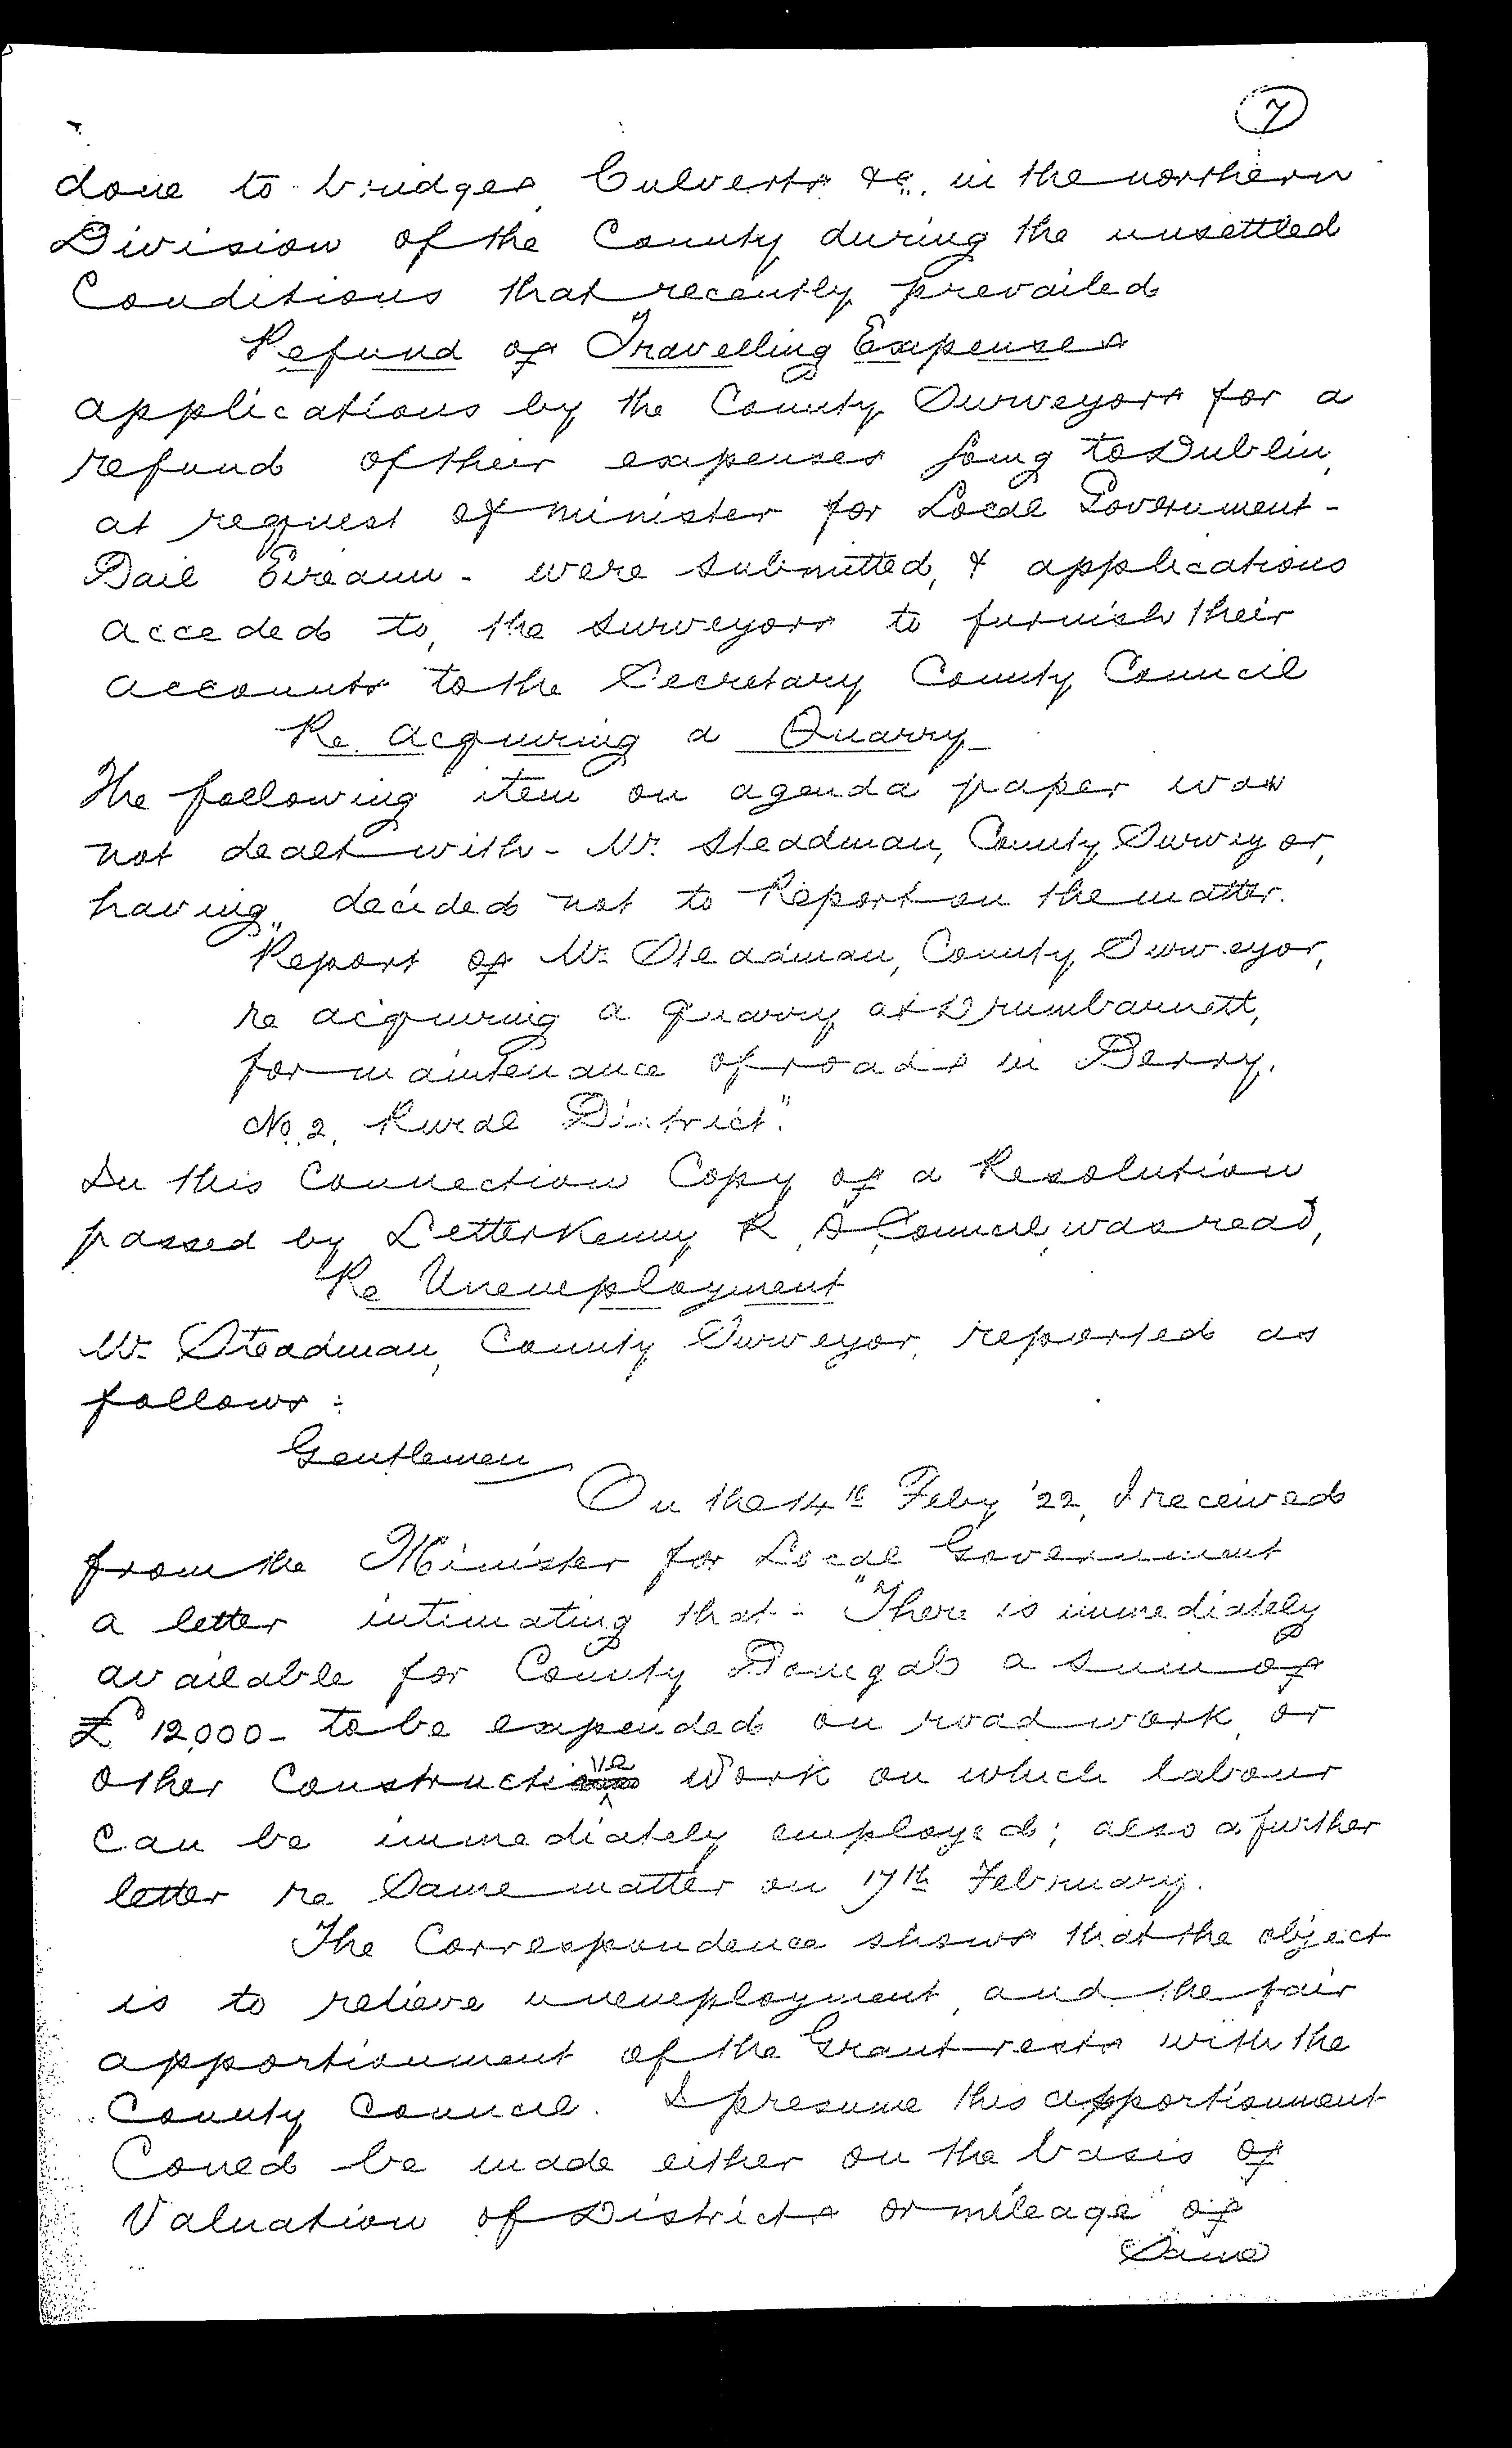 7
done to bridges, Culverts &c. in the northern
Division of the County during the unsettled
Conditions that recently prevailed
Refund of Travelling Expenses
applications by the County Surveyors for a
refund of their expenses going to Dublin,
at request of Minister for Local Government -
Dail Eireann - were submitted, & applications
acceded to, the surveyors to furnish their
accounts to the Secretary County Council
Re. acquiring a Quarry
The following item on agenda paper was
not dealt with - Mr. Steadman, County Surveyor,
having decided not to Report on the matter.
"Report of Mr. Steadman, County Surveyor,
re acquiring a quarry at Drumbarnett,
for maintenance of roads in Derry.
No. 2. Rural District."
In this Connection Copy of a Resolution
passed by Letterkenny R. D. Council, was read,
Re Unemployment
Mr. Steadman, County Surveyor, reported as
follows :
Gentlemen
On the 14th Feby '22, I received
from the Minister for Local Government
a letter intimating that :- "There is immediately
available for County Donegal a sum of
£12,000 - to be expended on road work, or
other Constructive work on which labour
can be immediately employed; also a further
letter re Same matter on 17th February.
The Correspondence shows that the object
is to relieve unemployment, and the fair
apportionment of the Grant rests with the
County Council. I presume this apportionment
Could be made either on the basis of
Valuation of Districts or mileage of
Same